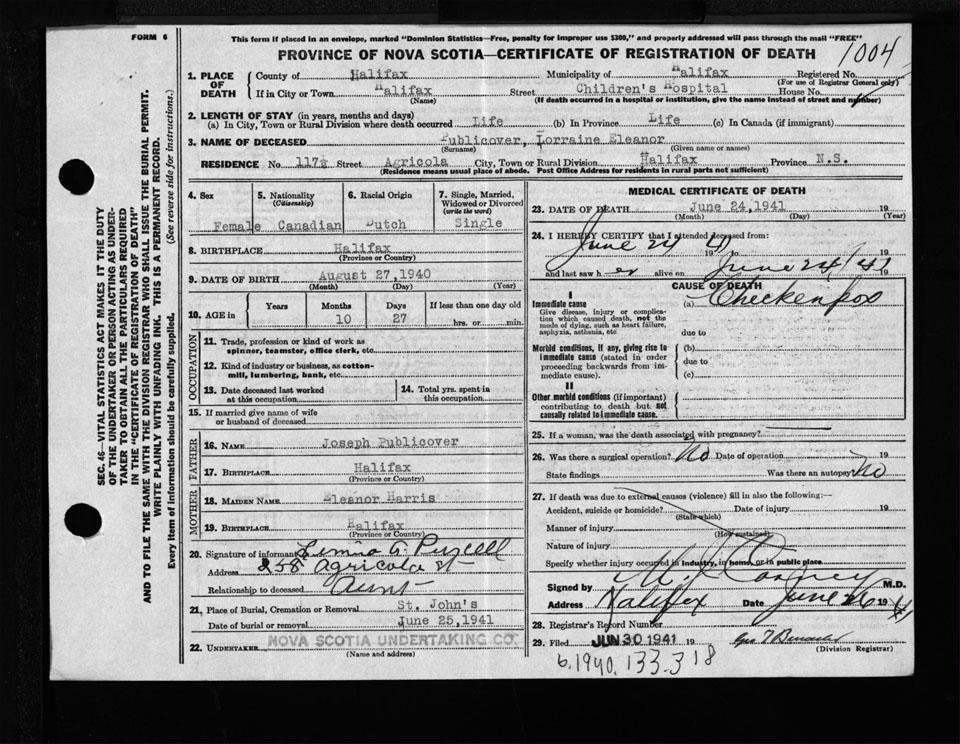 FORM 6
This form if placed in an envelope, marked "Dominion Statistics—Free, penalty for improper use $300," and properly addressed will pass through the mail "FREE"
PROVINCE OF NOVA SCOTIA—CERTIFICATE OF REGISTRATION OF DEATH
1004
1. PLACE OF DEATH
County of Halifax Municipality of Halifax Registered No.
(For use of Registrar General only)
If in City or Town Halifax Street Children's Hospital House No.
(Name) (If death occurred in a hospital or institution, give the name instead of street and number)
2. LENGTH OF STAY (in years, months and days)
(a) In City, Town or Rural Division where death occurred Life (b) In Province Life (c) In Canada (if immigrant)
3. NAME OF DECEASED Publicover, Lorraine Eleanor
(Surname) (Given name or names)
RESIDENCE No. 117½ Street Agricola City, Town or Rural Division Halifax Province N.S.
(Residence means usual place of abode. Post Office Address for residents in rural parts not sufficient)
4. Sex
Female
5. Nationality
(Citizenship)
Canadian
6. Racial Origin
Dutch
7. Single, Married, Widowed or Divorced
(write the word)
Single
8. BIRTHPLACE Halifax
(Province or Country)
9. DATE OF BIRTH August 27, 1940
(Month) (Day) (Year)
10. AGE in
Years Months Days If less than one day old
10 27 hrs. or min.
OCCUPATION
11. Trade, profession or kind of work as spinner, teamster, office clerk, etc.
12. Kind of industry or business, as cotton-mill, lumbering, bank, etc.
13. Date deceased last worked at this occupation
14. Total yrs. spent in this occupation
15. If married give name of wife or husband of deceased
FATHER
16. NAME Joseph Publicover
17. BIRTHPLACE Halifax
(Province or Country)
MOTHER
18. MAIDEN NAME Eleanor Harris
19. BIRTHPLACE Halifax
(Province or Country)
20. Signature of informant A. Purcell
Address 258 Agricola St
Relationship to deceased Aunt
21. Place of Burial, Cremation or Removal St. John's
Date of burial or removal June 25, 1941
22. UNDERTAKER NOVA SCOTIA UNDERTAKING CO.
(Name and address)
MEDICAL CERTIFICATE OF DEATH
23. DATE OF DEATH June 24, 1941 19
(Month) (Day) (Year)
24. I HEREBY CERTIFY that I attended deceased from:
June 24 41 19 to 19
and last saw h er alive on June 24/41 19
CAUSE OF DEATH
I
Immediate cause (a) Checkenpox
Give disease, injury or complication which caused death, not the mode of dying, such as heart failure, asphyxia, asthenia, etc
due to
Morbid conditions, if any, giving rise to immediate cause (stated in order proceeding backwards from immediate cause).
(b)
due to
(c)
II
Other morbid conditions (if important) contributing to death but not causally related to immediate cause.
25. If a woman, was the death associated with pregnancy?
26. Was there a surgical operation? No Date of operation 19
State findings Was there an autopsy No
27. If death was due to external causes (violence) fill in also the following:—
Accident, suicide or homicide? Date of injury 19
(State which)
Manner of injury
(How sustained)
Nature of injury
Specify whether injury occurred in industry, in home, or in public place
Signed by M.D.
Address Halifax Date June 26 1941
28. Registrar's Record Number
29. Filed JUN 30 1941 19
(Division Registrar)
6.1940.133.318
SEC. 46—VITAL STATISTICS ACT MAKES IT THE DUTY
OF THE UNDERTAKER OR PERSON ACTING AS UNDER-
TAKER TO OBTAIN ALL THE PARTICULARS REQUIRED
IN THE "CERTIFICATE OF REGISTRATION OF DEATH"
AND TO FILE THE SAME WITH THE DIVISION REGISTRAR WHO SHALL ISSUE THE BURIAL PERMIT.
WRITE PLAINLY WITH UNFADING INK. THIS IS A PERMANENT RECORD.
Every item of information should be carefully supplied. (See reverse side for instructions.)